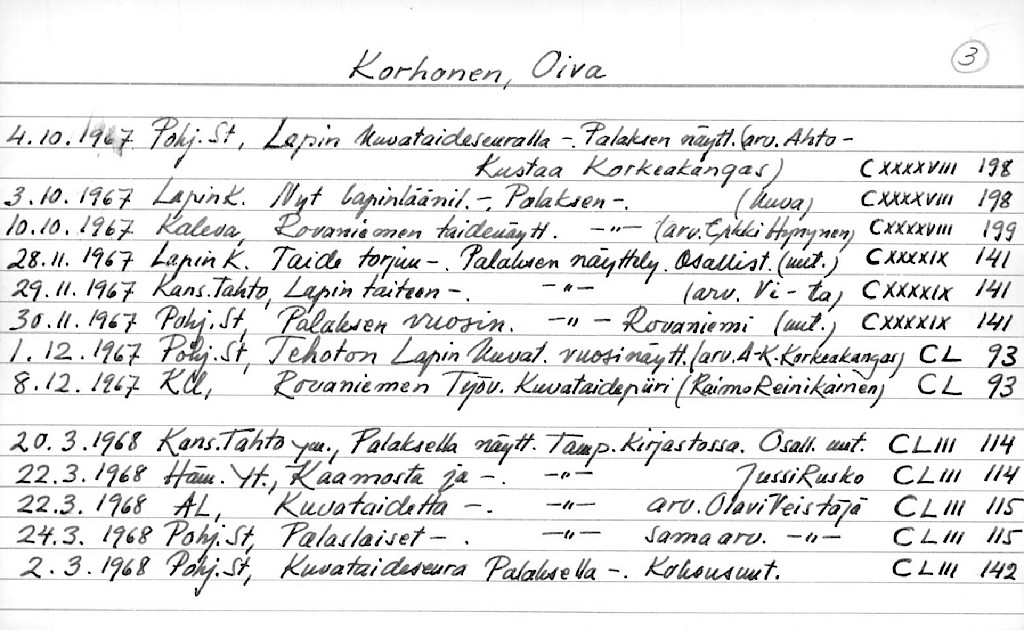 3
Korhonen, Oiva
4.10.1967 Pohj.St, Lapin Kuvataideseuralla - Palaksen näytt. (arv. Ahto -
Kustaa Korkeakangas) CXXXXVIII 198
3.10.1967 Lapin K. Nyt lapinläänil. -, Palaksen -. (kuva) CXXXXVIII 198
10.10.1967 Kaleva, Rovaniemen taidenäytt. -"- (arv. Erkki Hynynen) CXXXXVIII 199
28.11.1967 Lapin K. Taide torjuu -. Palaksen näyttely. Osallist. (uut.) CXXXXIX 141
29.11.1967 Kans.Tahto, Lapin taiteen -. -"- (arv. Vi - ta) CXXXXIX 141
30.11.1967 Pohj.St, Palaksen vuosin. -"- Rovaniemi (uut.) CXXXXIX 141
1.12.1967 Pohj.St, Tehoton Lapin Kuvat. vuosinäytt. (arv. A-K. Korkeakangas) CL 93
8.12.1967 KU, Rovaniemen Työv. Kuvataidepiiri (Raimo Reinikainen) CL 93
20.3.1968 Kans.Tahto ym., Palaksella näytt. Tamp. Kirjastossa. Osall. uut. CLIII 114
22.3.1968 Häm. Yt., Kaamosta ja -. -"- Jussi Rusko CLIII 114
22.3.1968 AL, Kuvataidetta -. -"- arv. Olavi Veistäjä CLIII 115
24.3.1968 Pohj.St, Palaslaiset - . -"- sama arv. -"- CLIII 115
2.3.1968 Pohj.St, Kuvataideseura Palaksella -. Kokousuut. CLIII 142